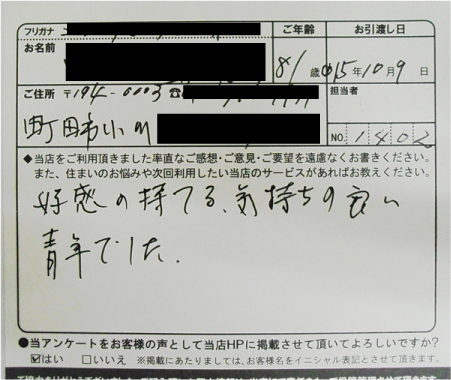 フリガナ
お名前
ご年齢
81歳
お引渡し日
15年10月9日
ご住所 〒194-0003 ☎
町田市小川
担当者
NO. 1402
◆当店をご利用頂きました率直なご感想・ご意見・ご要望を遠慮なくお書きください。
また、住まいのお悩みや次回利用したい当店のサービスがあればお教えください。
好感の持てる、気持ちの良い
青年でした.
●当アンケートをお客様の声として当店HPに掲載させて頂いてよろしいですか?
☑はい □いいえ ※掲載にあたりましては、お客様名をイニシャル表記とさせて頂きます。